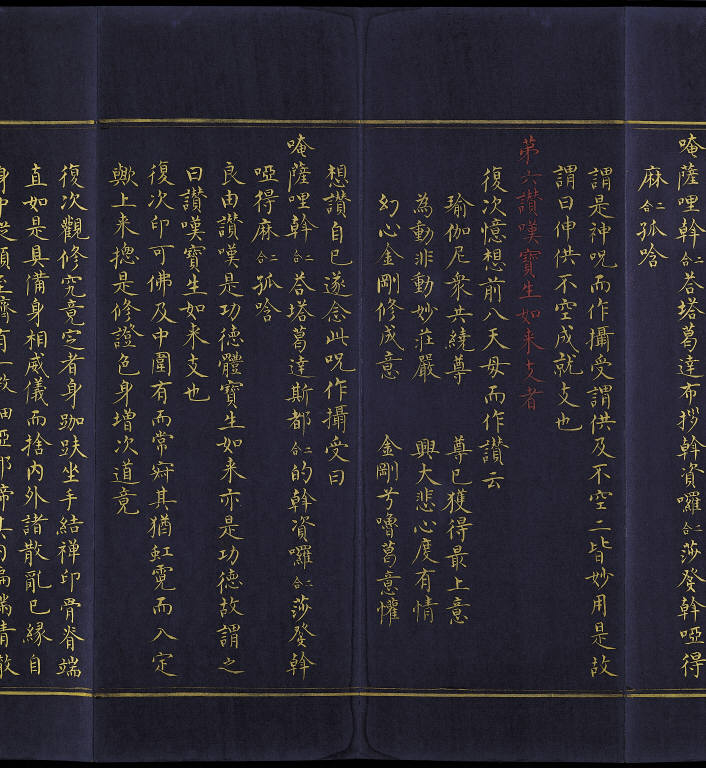 唵薩哩斡二合荅塔葛達布拶斡資囉二合莎癹斡啞得
麻二合孤唅
謂是神呪而作攝受謂供及不空二皆妙用是故
謂曰伸供不空成就支也
第六讃嘆寶生如来支者
復次憶想前八天母而作讃云
瑜伽尼衆共繞尊 尊已獲得最上意
為動非動妙莊嚴 興大悲心度有情
幻心金剛修成意 金剛兮嚕葛意懽
想讃自已遂念此呪作攝受曰
唵薩哩斡二合荅塔葛達斯都二合的斡資囉二合莎癹斡
啞得麻二合孤唅
良由讃嘆是功德體寶生如来亦是功德故謂之
曰讃嘆寶生如来支也
復次印可佛及中圍有而常寂其猶虹霓而入定
歟上来揔是修證色身增次道竟
復次觀修究竟定者身跏趺坐手結禅印骨脊端
直如是具備身相威儀而捨内外諸散亂已緣自
身中從頂至臍有一